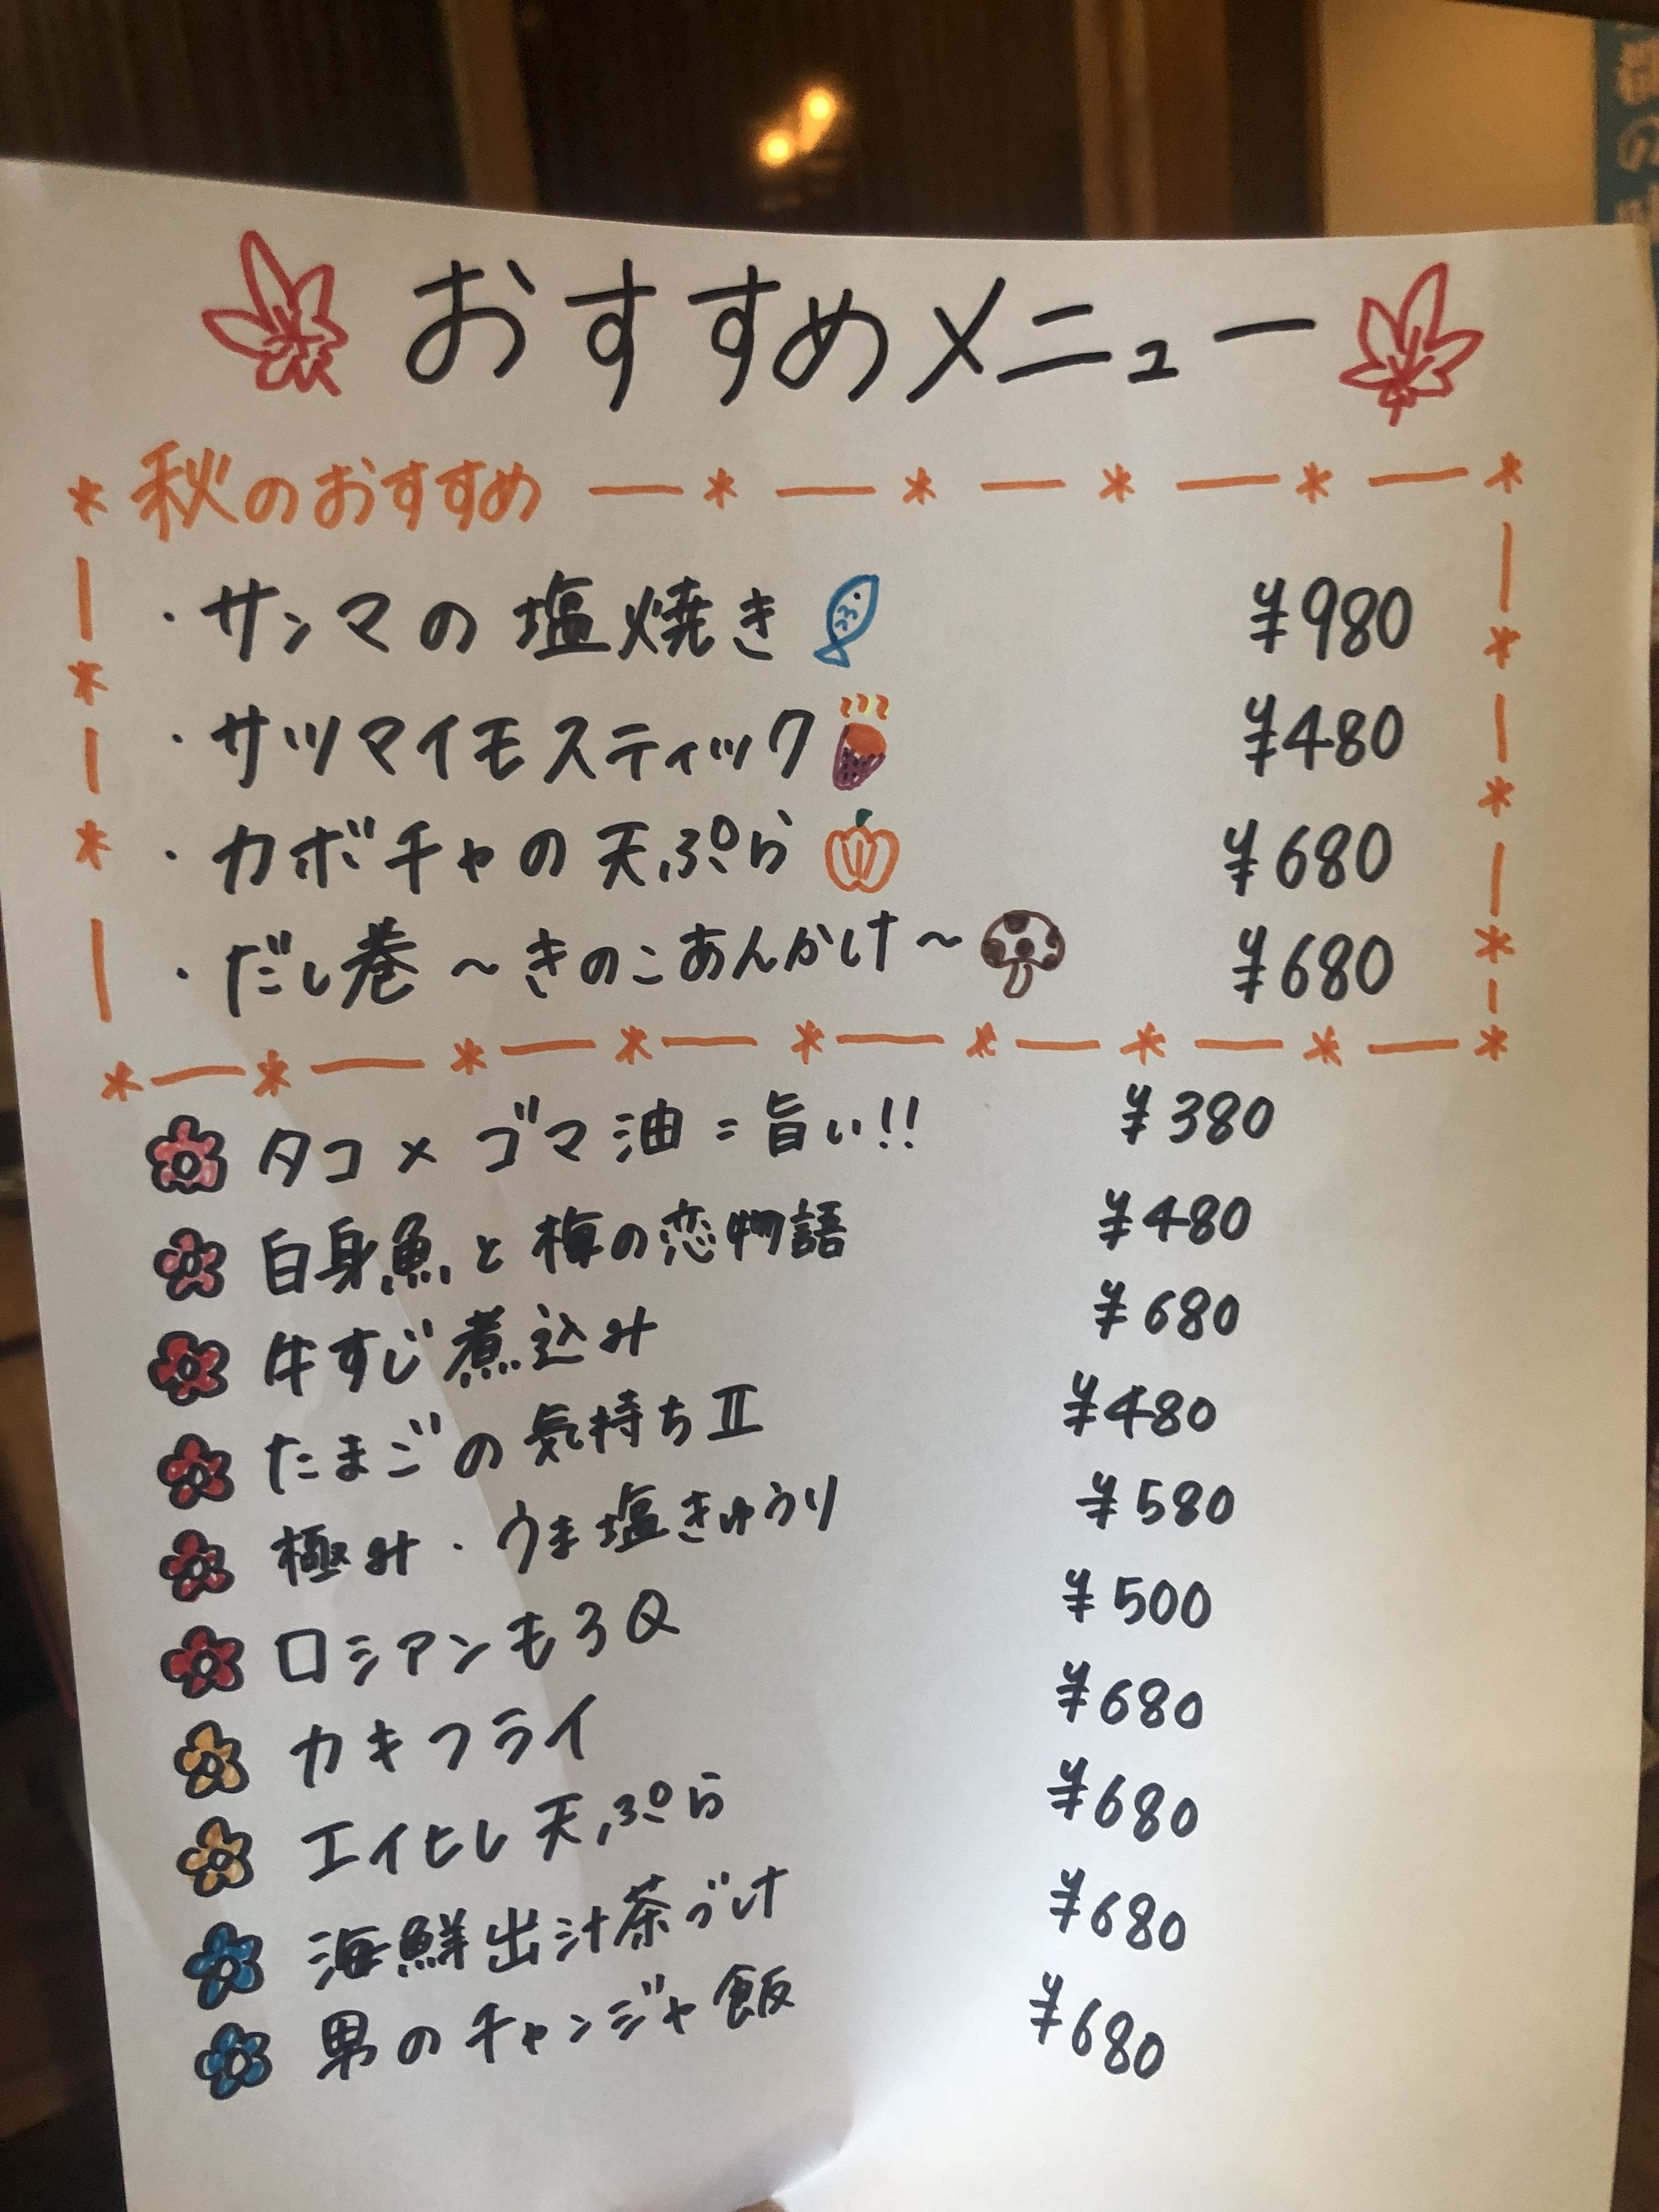 おすすめメニュー
秋のおすすめ
・サンマの塩焼き ¥980
・サツマイモスティック ¥480
・カボチャの天ぷら ¥680
・だし巻〜きのこあんかけ〜 ¥680
タコ×ゴマ油=旨い!! ¥380
白身魚と梅の恋物語 ¥480
牛すじ煮込み ¥680
たまごの気持ちⅡ ¥480
極み・うま塩きゅうり ¥580
ロシアンもろQ ¥500
カキフライ ¥680
エイヒレ天ぷら ¥680
海鮮出汁茶づけ ¥680
男のチャンジャ飯 ¥680